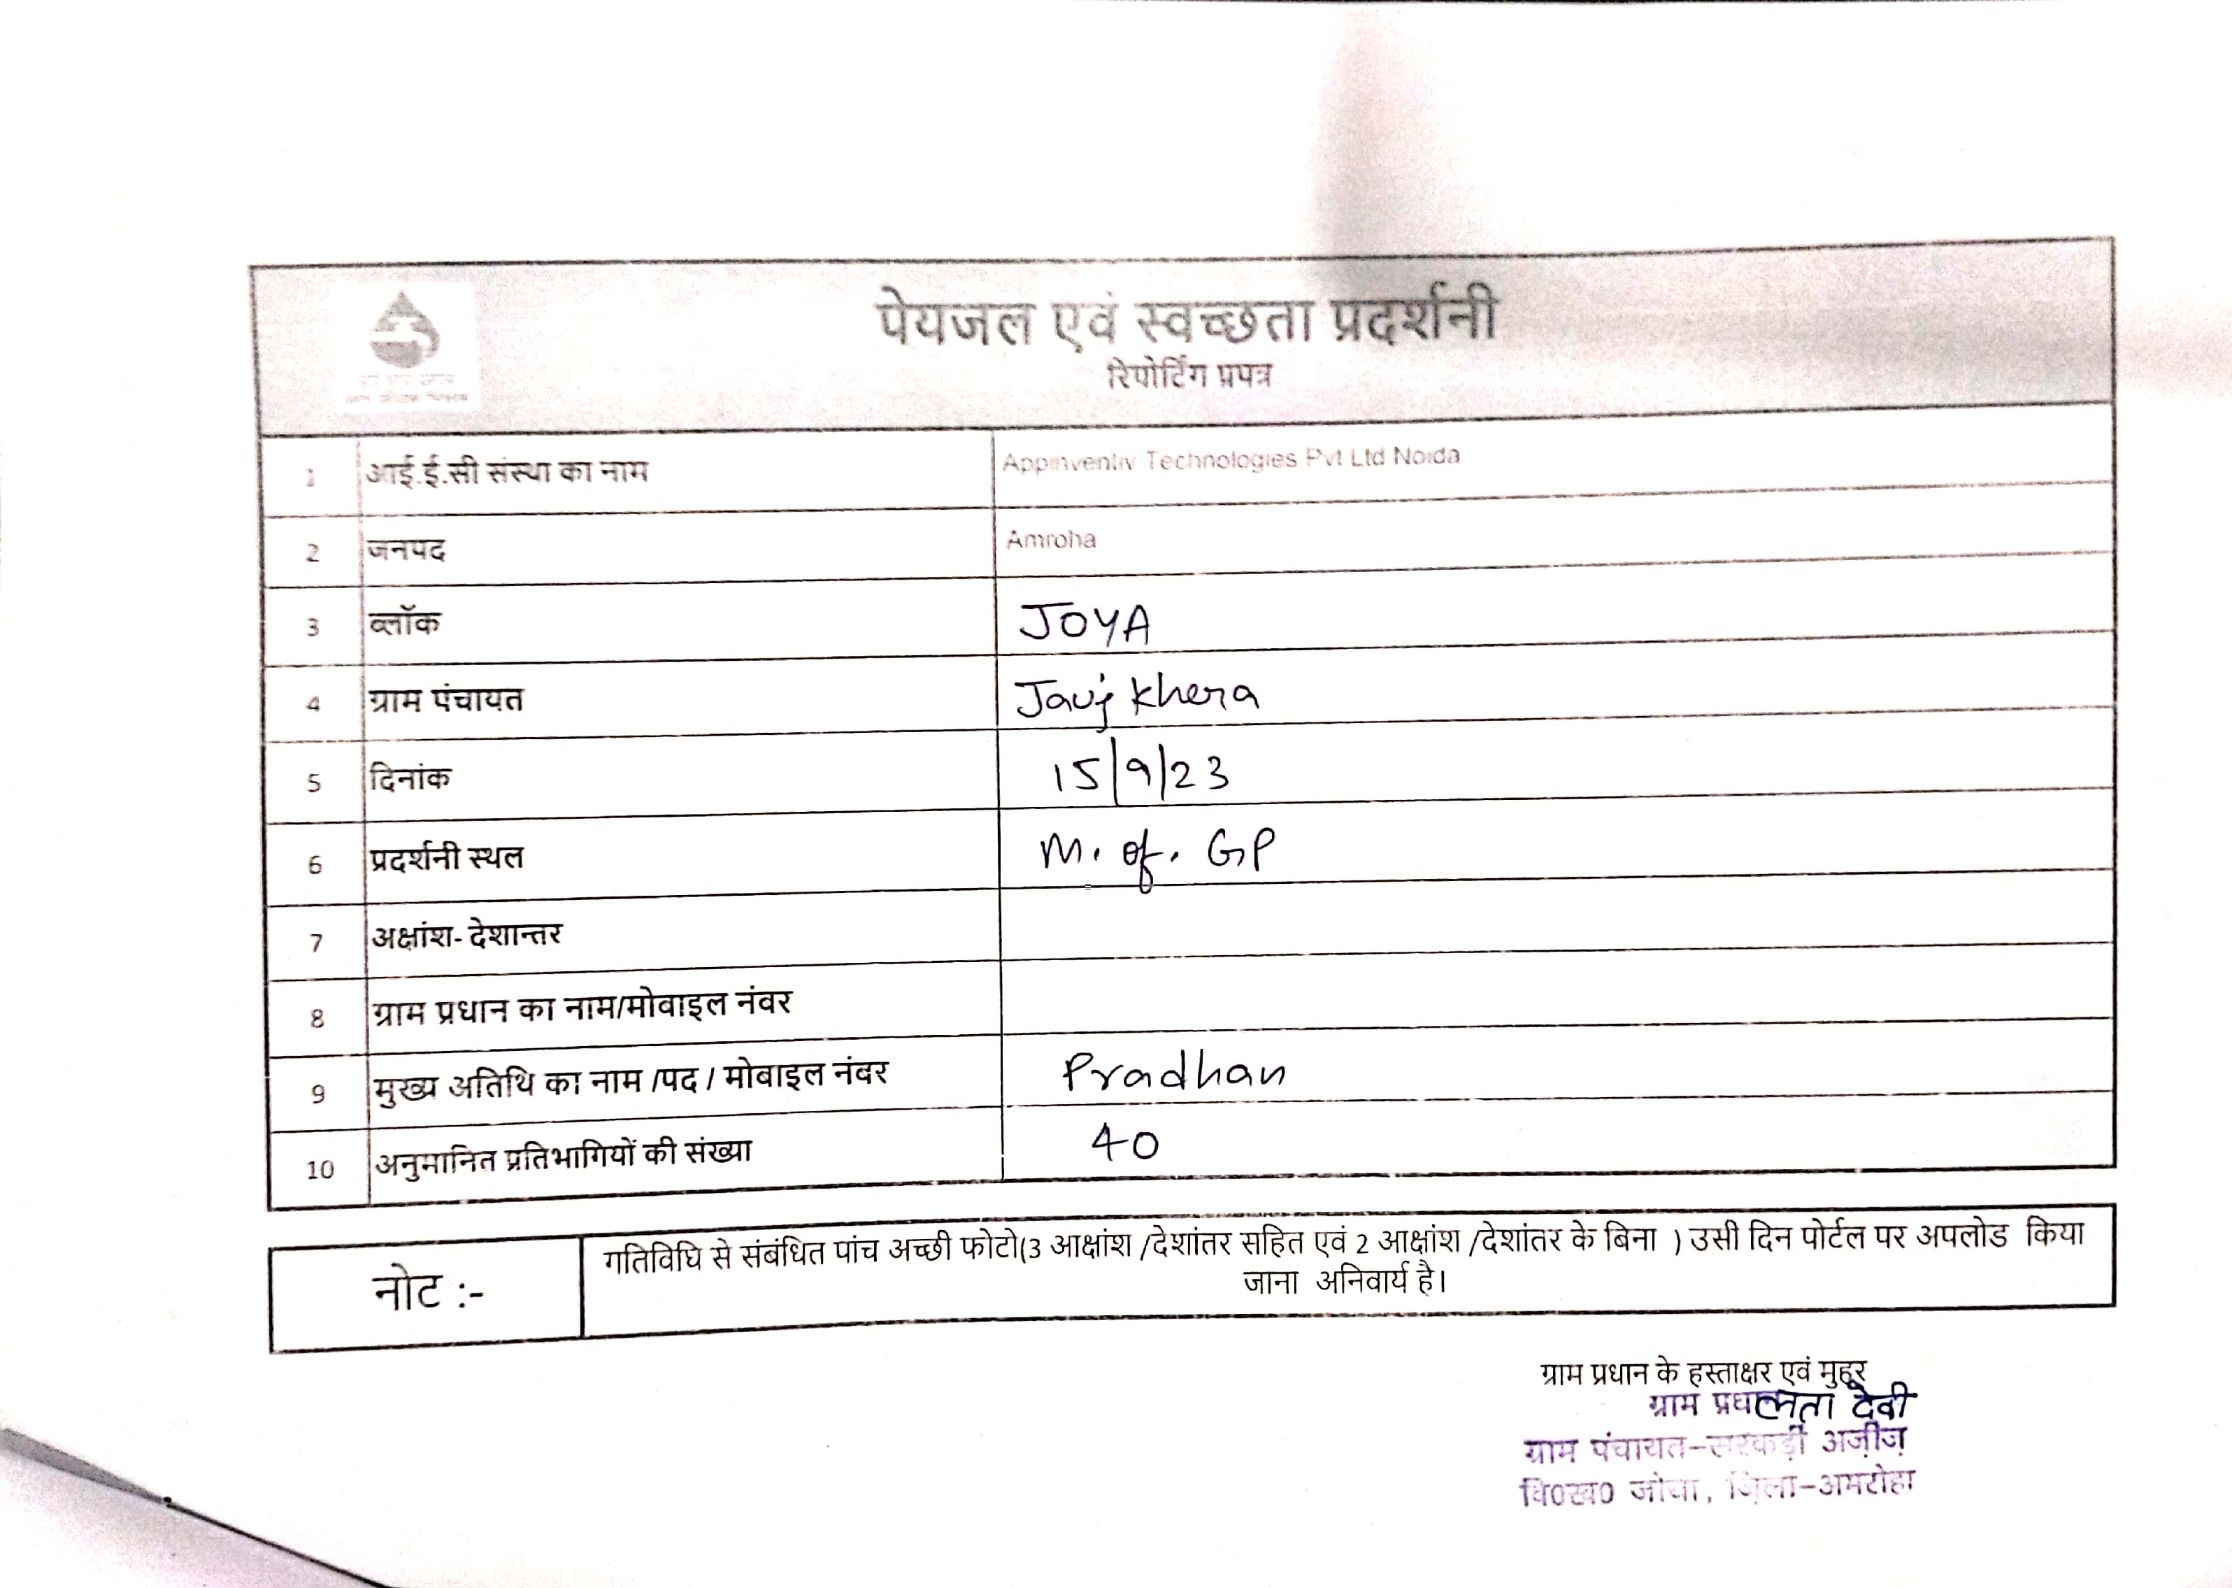 पेयजल एवं स्वच्छता प्रदर्शनी
रिपोर्टिंग प्रपत्र
1 आई.ई.सी संस्था का नाम Appinventiv Technologies Pvt Ltd Noida
2 जनपद Amroha
3 ब्लॉक JOYA
4 ग्राम पंचायत Jauj Khera
5 दिनांक 15/9/23
6 प्रदर्शनी स्थल M. of. GP
7 अक्षांश- देशान्तर
8 ग्राम प्रधान का नाम/मोबाइल नंबर
9 मुख्य अतिथि का नाम /पद / मोबाइल नंबर Pradhan
10 अनुमानित प्रतिभागियों की संख्या 40
नोट :- गतिविधि से संबंधित पांच अच्छी फोटो(3 आक्षांश /देशांतर सहित एवं 2 आक्षांश /देशांतर के बिना ) उसी दिन पोर्टल पर अपलोड किया
जाना अनिवार्य है।
ग्राम प्रधान के हस्ताक्षर एवं मुहर
लता देवी
ग्राम पंचायत-सरकड़ी अज़ीज़
वि0ख0 जोया, ज़िला-अमरोहा